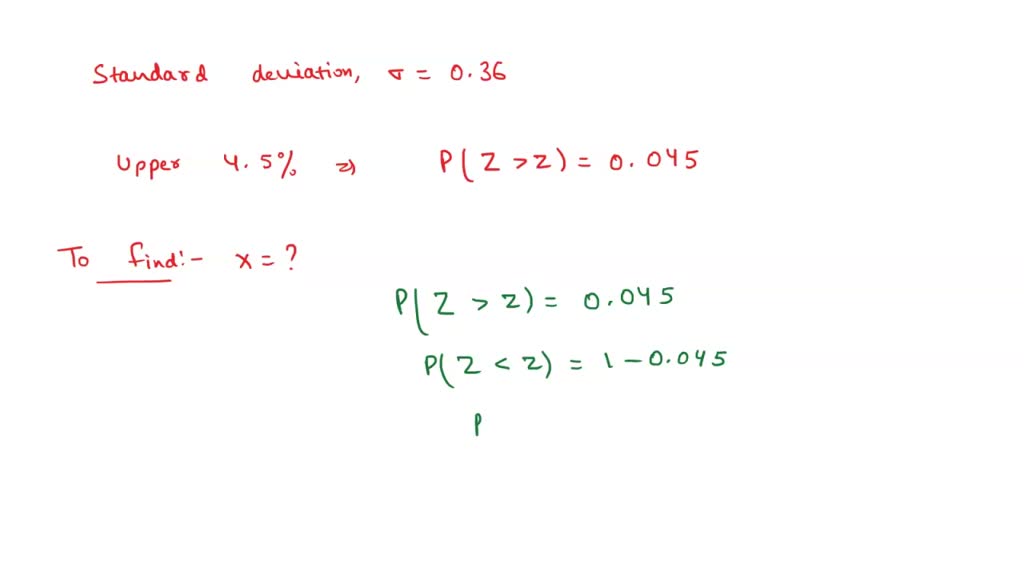 Standard deviation, σ = 0.36
Upper 4.5% ⇒ P(Z > z) = 0.045
To find:- x = ?
P(Z > z) = 0.045
P(Z < z) = 1 - 0.045
P